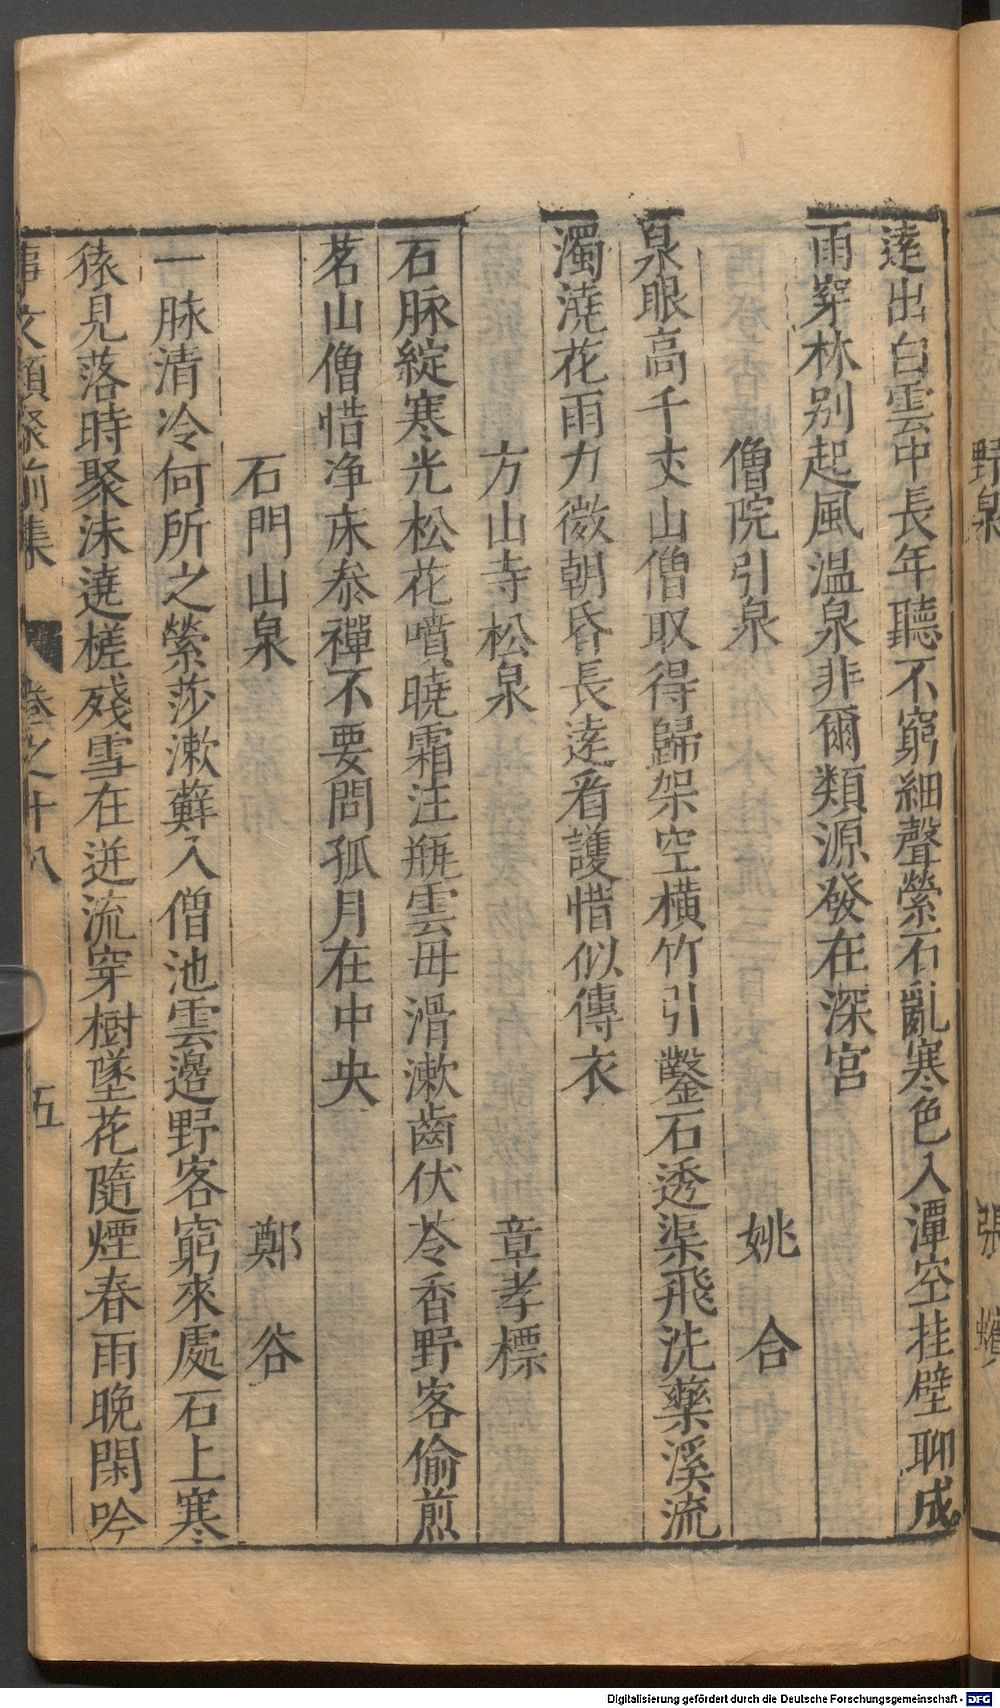 野泉 張蠙
遠出白雲中長年聽不窮細聲縈石亂寒色入潭空挂壁聊成
雨穿林别起風温泉非爾類源發在深宫
僧院引泉 姚合
泉眼高千丈山僧取得歸架空横竹引鑿石透渠飛洗藥溪流
濁澆花雨力微朝昏長遠看護惜似傳衣
方山寺松泉 章孝標
石脉綻寒光松花噴曉霜注瓶雲毋滑漱齒伏苓香野客偷煎
茗山僧惜净床叅禪不要問孤月在中央
石門山泉 鄭谷
一脉清冷何所之縈莎漱蘚入僧池雲邊野客窮來處石上寒
猿見落時聚沫遶槎殘雪在迸流穿樹墜花隨煙春雨晚閑吟
事文類聚前集 卷之十八 五
Digitalisierung gefördert durch die Deutsche Forschungsgemeinschaft - DFG